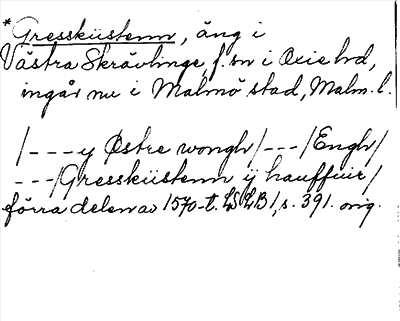 *Gresskiistenn, äng i
Västra Skrävlinge, f. sn i Oxie hd,
ingår nu i Malmö stad, Malm. l.
/---y Østre wongh/---/Engh/
---/Gresskiistenn ÿ hauffuir/
förra delen av 1570-t. LSLB 1, s. 391. orig.